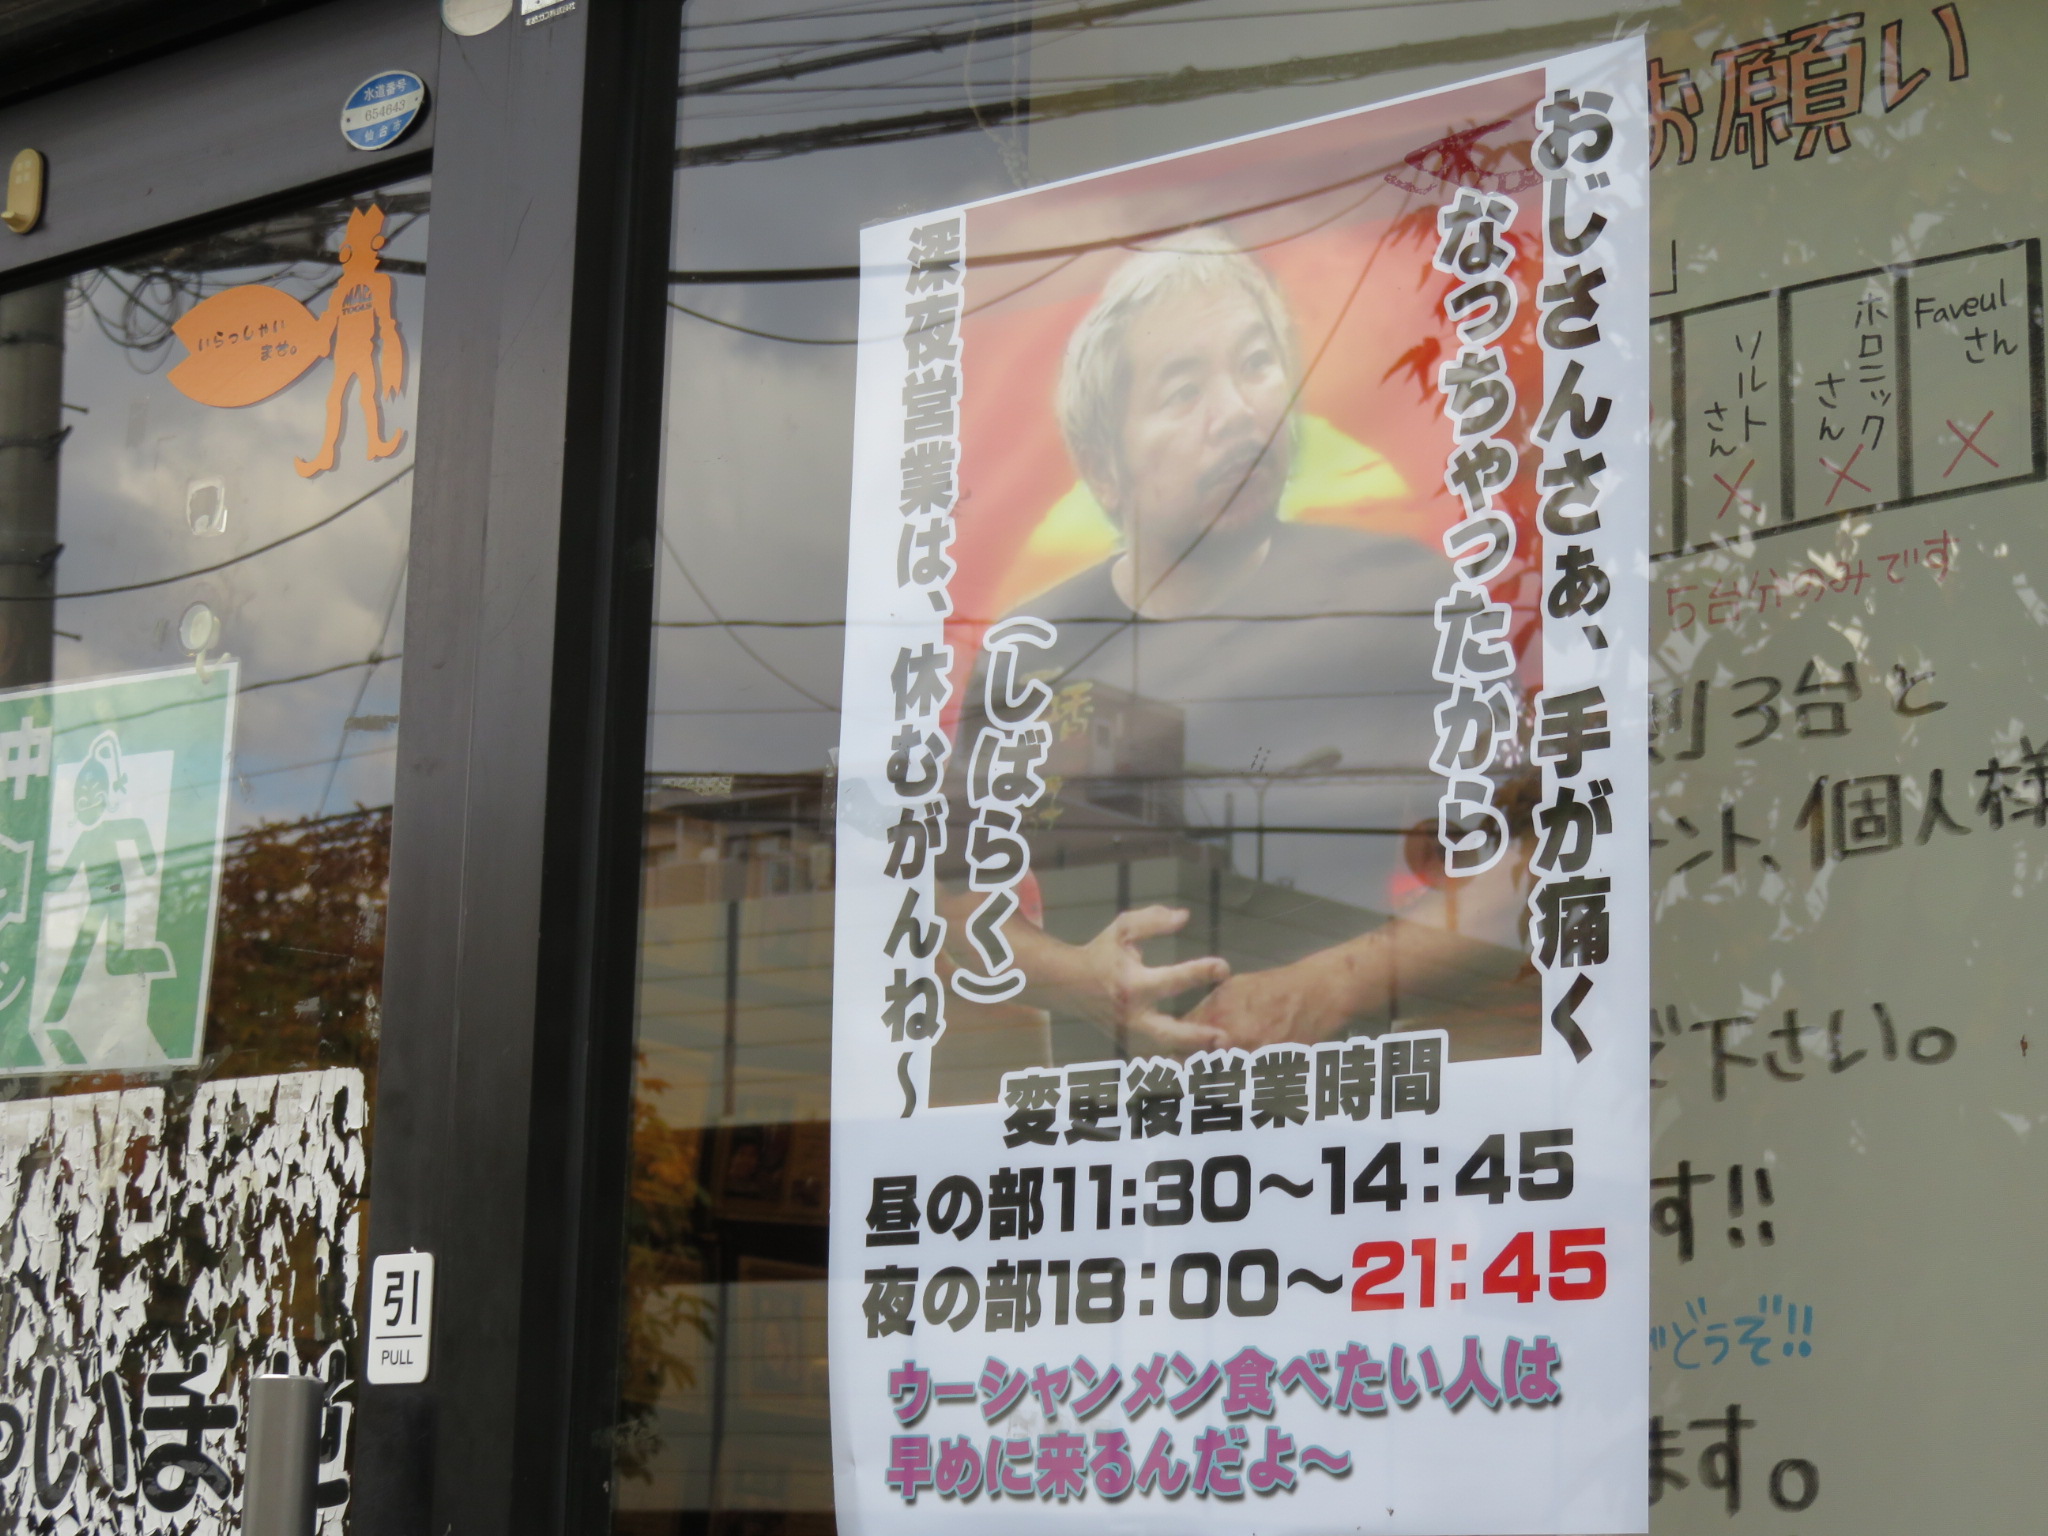 水道番号
654643
仙台市
MAD
TOOLS
いらっしゃい
ませ。
中
引
PULL
おじさんさぁ、手が痛く
なっちゃったから
(しばらく)
深夜営業は、休むがんね～
変更後営業時間
昼の部11:30～14:45
夜の部18:00～21:45
ウーシャンメン食べたい人は
早めに来るんだよ～
お願い
Faveul
さん
ホロニック
さん
ソルト
さん
×
×
×
5台分のみです
3台と
ント、個人様
下さい。
す!!
どうぞ!!
ます。